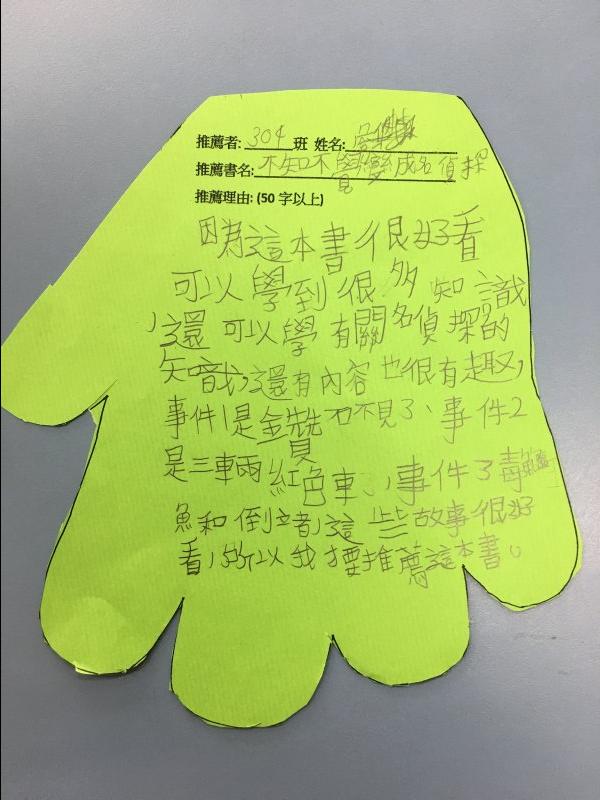 推薦者: 304 班 姓名:
推薦書名: 不知不覺變成名偵探
推薦理由: (50 字以上)
因為這本書很好看
可以學到很多知識
,還可以學有關名偵探的
知哉,還有內容也很有趣,
事件1是金 不見了、事件2
是三輛紅色車,事件3毒
魚和倒 者,這些故事很好
看,所以我要推薦這本書。